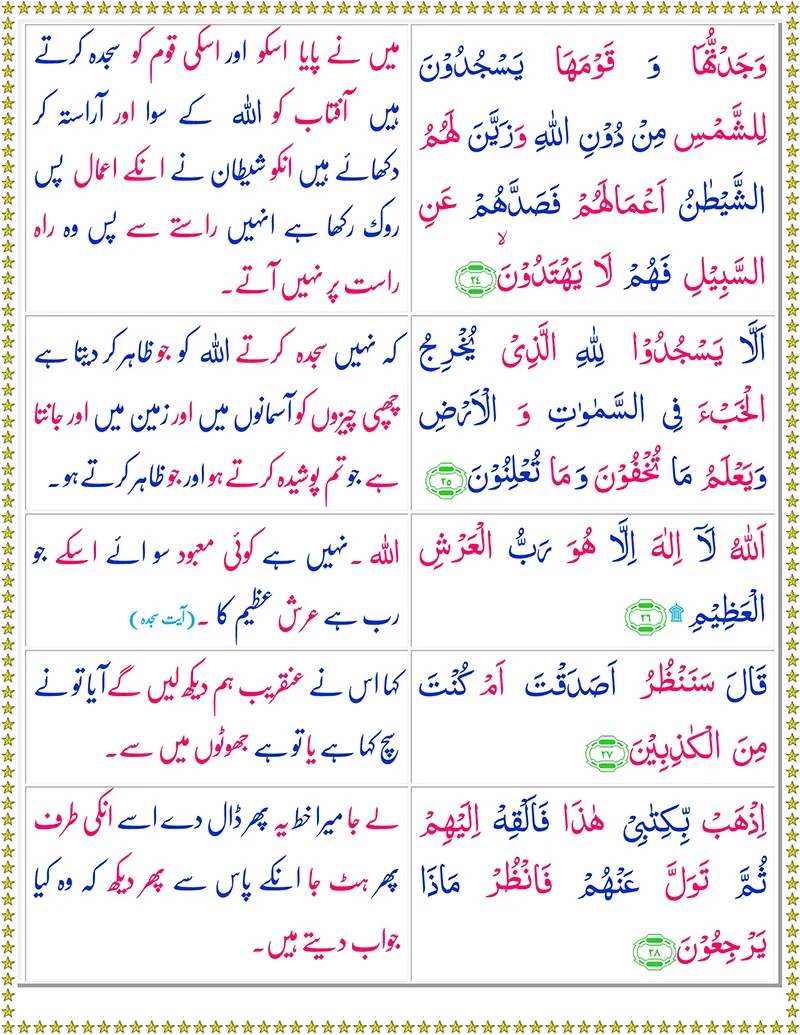 وَجَدْتُّهَا وَ قَوْمَهَا يَسْجُدُوْنَ
لِلشَّمْسِ مِنْ دُوْنِ اللّٰهِ وَزَيَّنَ لَهُمُ
الشَّيْطٰنُ اَعْمَالَهُمْ فَصَدَّهُمْ عَنِ
السَّبِيْلِ فَهُمْ لَا يَهْتَدُوْنَ ۙ ٢٤
میں نے پایا اسکو اور اسکی قوم کو سجدہ کرتے
ہیں آفتاب کو اللہ کے سوا اور آراستہ کر
دکھائے ہیں انکو شیطان نے انکے اعمال پس
روک رکھا ہے انہیں راستے سے پس وہ راہ
راست پر نہیں آتے۔
اَلَّا يَسْجُدُوْا لِلّٰهِ الَّذِىْ يُخْرِجُ
الْخَبْءَ فِى السَّمٰوٰتِ وَ الْاَرْضِ
وَيَعْلَمُ مَا تُخْفُوْنَ وَمَا تُعْلِنُوْنَ ٢٥
کہ نہیں سجدہ کرتے اللہ کو جو ظاہر کر دیتا ہے
چھپی چیزوں کو آسمانوں میں اور زمین میں اور جانتا
ہے جو تم پوشیدہ کرتے ہو اور جو ظاہر کرتے ہو۔
اَللّٰهُ لَاۤ اِلٰهَ اِلَّا هُوَ رَبُّ الْعَرْشِ
الْعَظِيْمِ ۩ ٢٦
اللہ ۔ نہیں ہے کوئی معبود سوائے اسکے جو
رب ہے عرش عظیم کا ۔ (آیت سجدہ)
قَالَ سَنَنْظُرُ اَصَدَقْتَ اَمْ كُنْتَ
مِنَ الْكٰذِبِيْنَ ٢٧
کہا اس نے عنقریب ہم دیکھ لیں گے آیا تو نے
سچ کہا ہے یا تو ہے جھوٹوں میں سے۔
اِذْهَبْ بِّكِتٰبِىْ هٰذَا فَاَلْقِهْ اِلَيْهِمْ
ثُمَّ تَوَلَّ عَنْهُمْ فَانْظُرْ مَاذَا
يَرْجِعُوْنَ ٢٨
لے جا میرا خط یہ پھر ڈال دے اسے انکی طرف
پھر ہٹ جا انکے پاس سے پھر دیکھ کہ وہ کیا
جواب دیتے ہیں۔